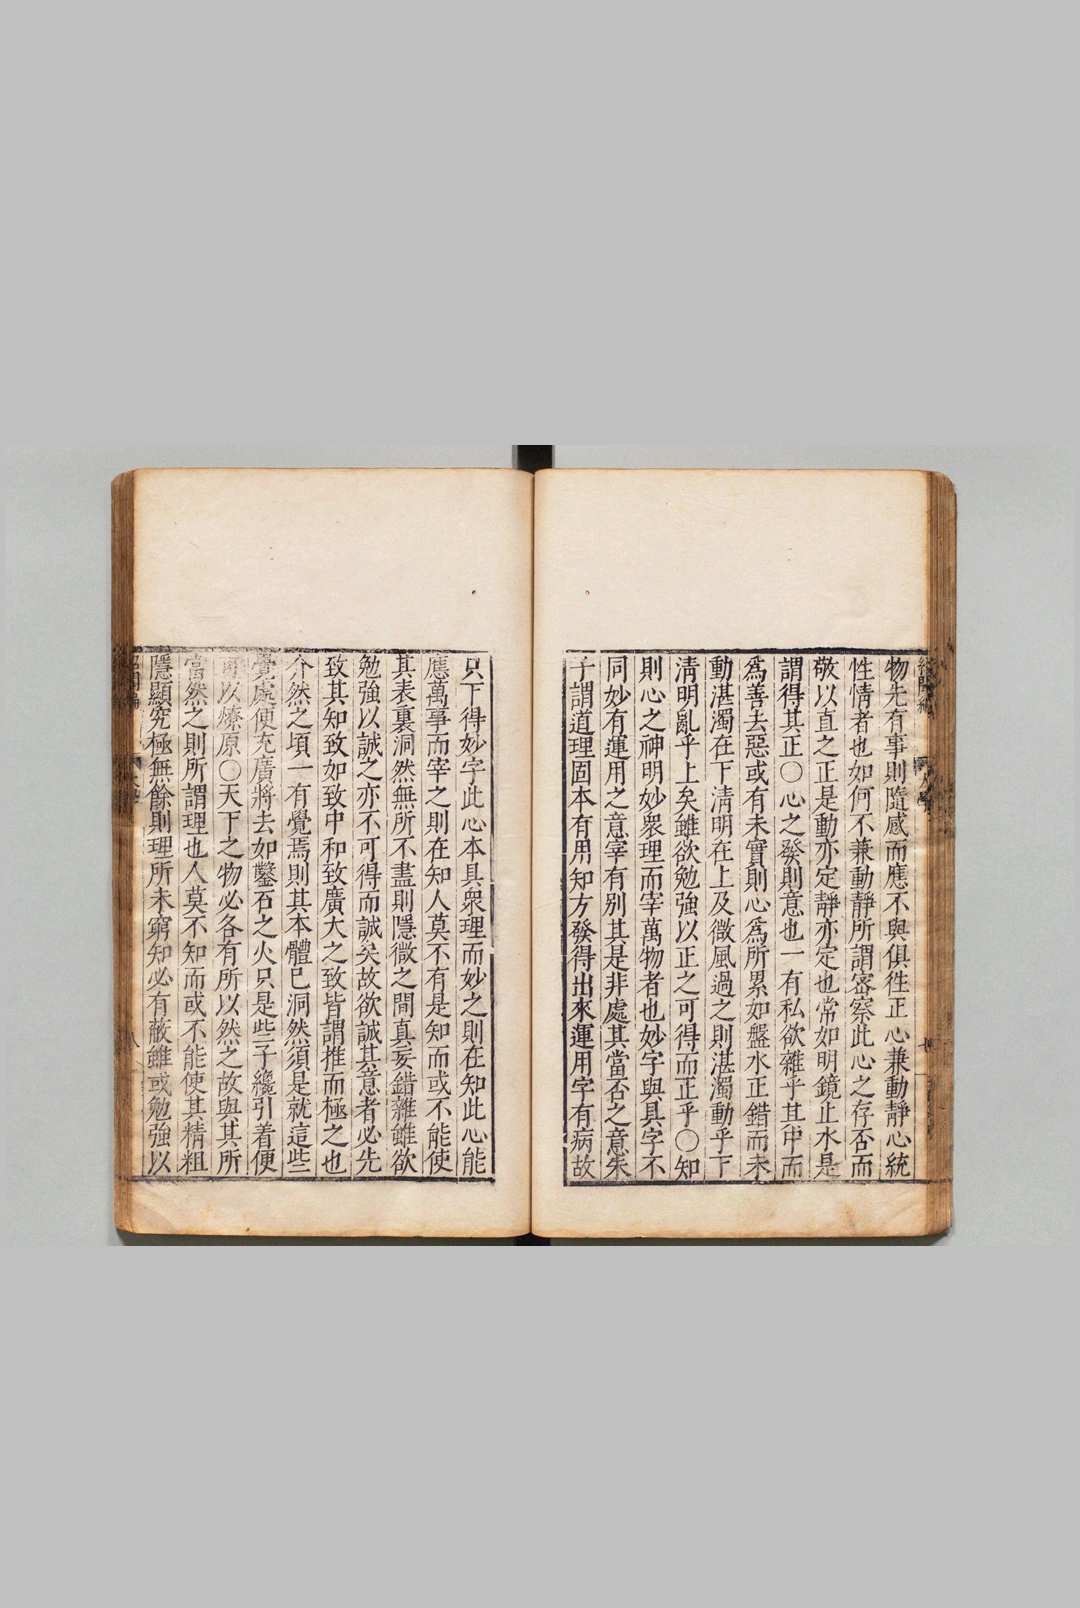 物先有事則隨感而應不與俱徃正心兼動靜心統
性情者也如何不兼動靜所謂宻察此心之存否而
敬以直之正是動亦定靜亦定也常如明鏡止水是
謂得其正〇心之發則意也一有私欲雜乎其中而
爲善去惡或有未實則心爲所累如盤水正錯而未
動湛濁在下淸明在上及微風過之則湛濁動乎下
淸明亂乎上矣雖欲勉強以正之可得而正乎〇知
則心之神明妙衆理而宰萬物者也妙字與具字不
同妙有運用之意宰有别其是非處其當否之意朱
子謂道理固本有用知方發得出來運用字有病故
只下得妙字此心本具衆理而妙之則在知此心能
應萬事而宰之則在知人莫不有是知而或不能使
其表裏洞然無所不盡則隱微之間真妄錯雜雖欲
勉強以誠之亦不可得而誠矣故欲誠其意者必先
致其知致如致中和致廣大之致皆謂推而極之也
介然之頃一有覺焉則其本體已洞然須是就這些
覺處便充廣將去如鑿石之火只是些子纔引着便
可以燎原〇天下之物必各有所以然之故與其所
當然之則所謂理也人莫不知而或不能使其精粗
隱顯究極無餘則理所未窮知必有蔽雖或勉強以